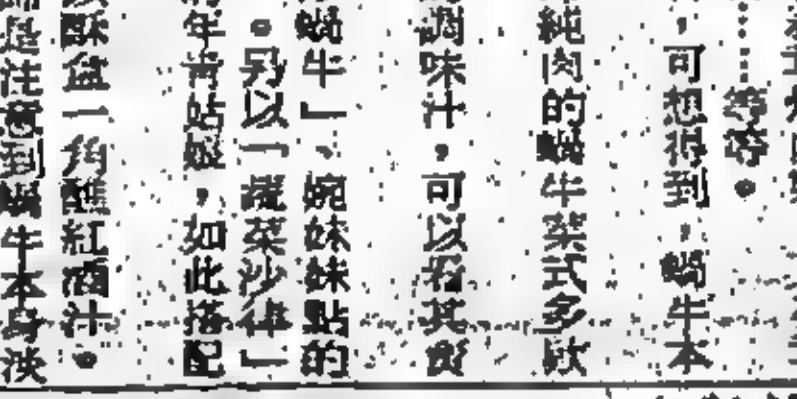 ……等等。
，可想得到，蝸牛本
純肉的蝸牛菜式多款
調味汁，可以看其
蝸牛」、婉妹妹點的
。另以「蔬菜沙律」
年青姑娘，如此搭配
酥盆一角蘸紅酒汁。
是注意到蝸牛本身淡